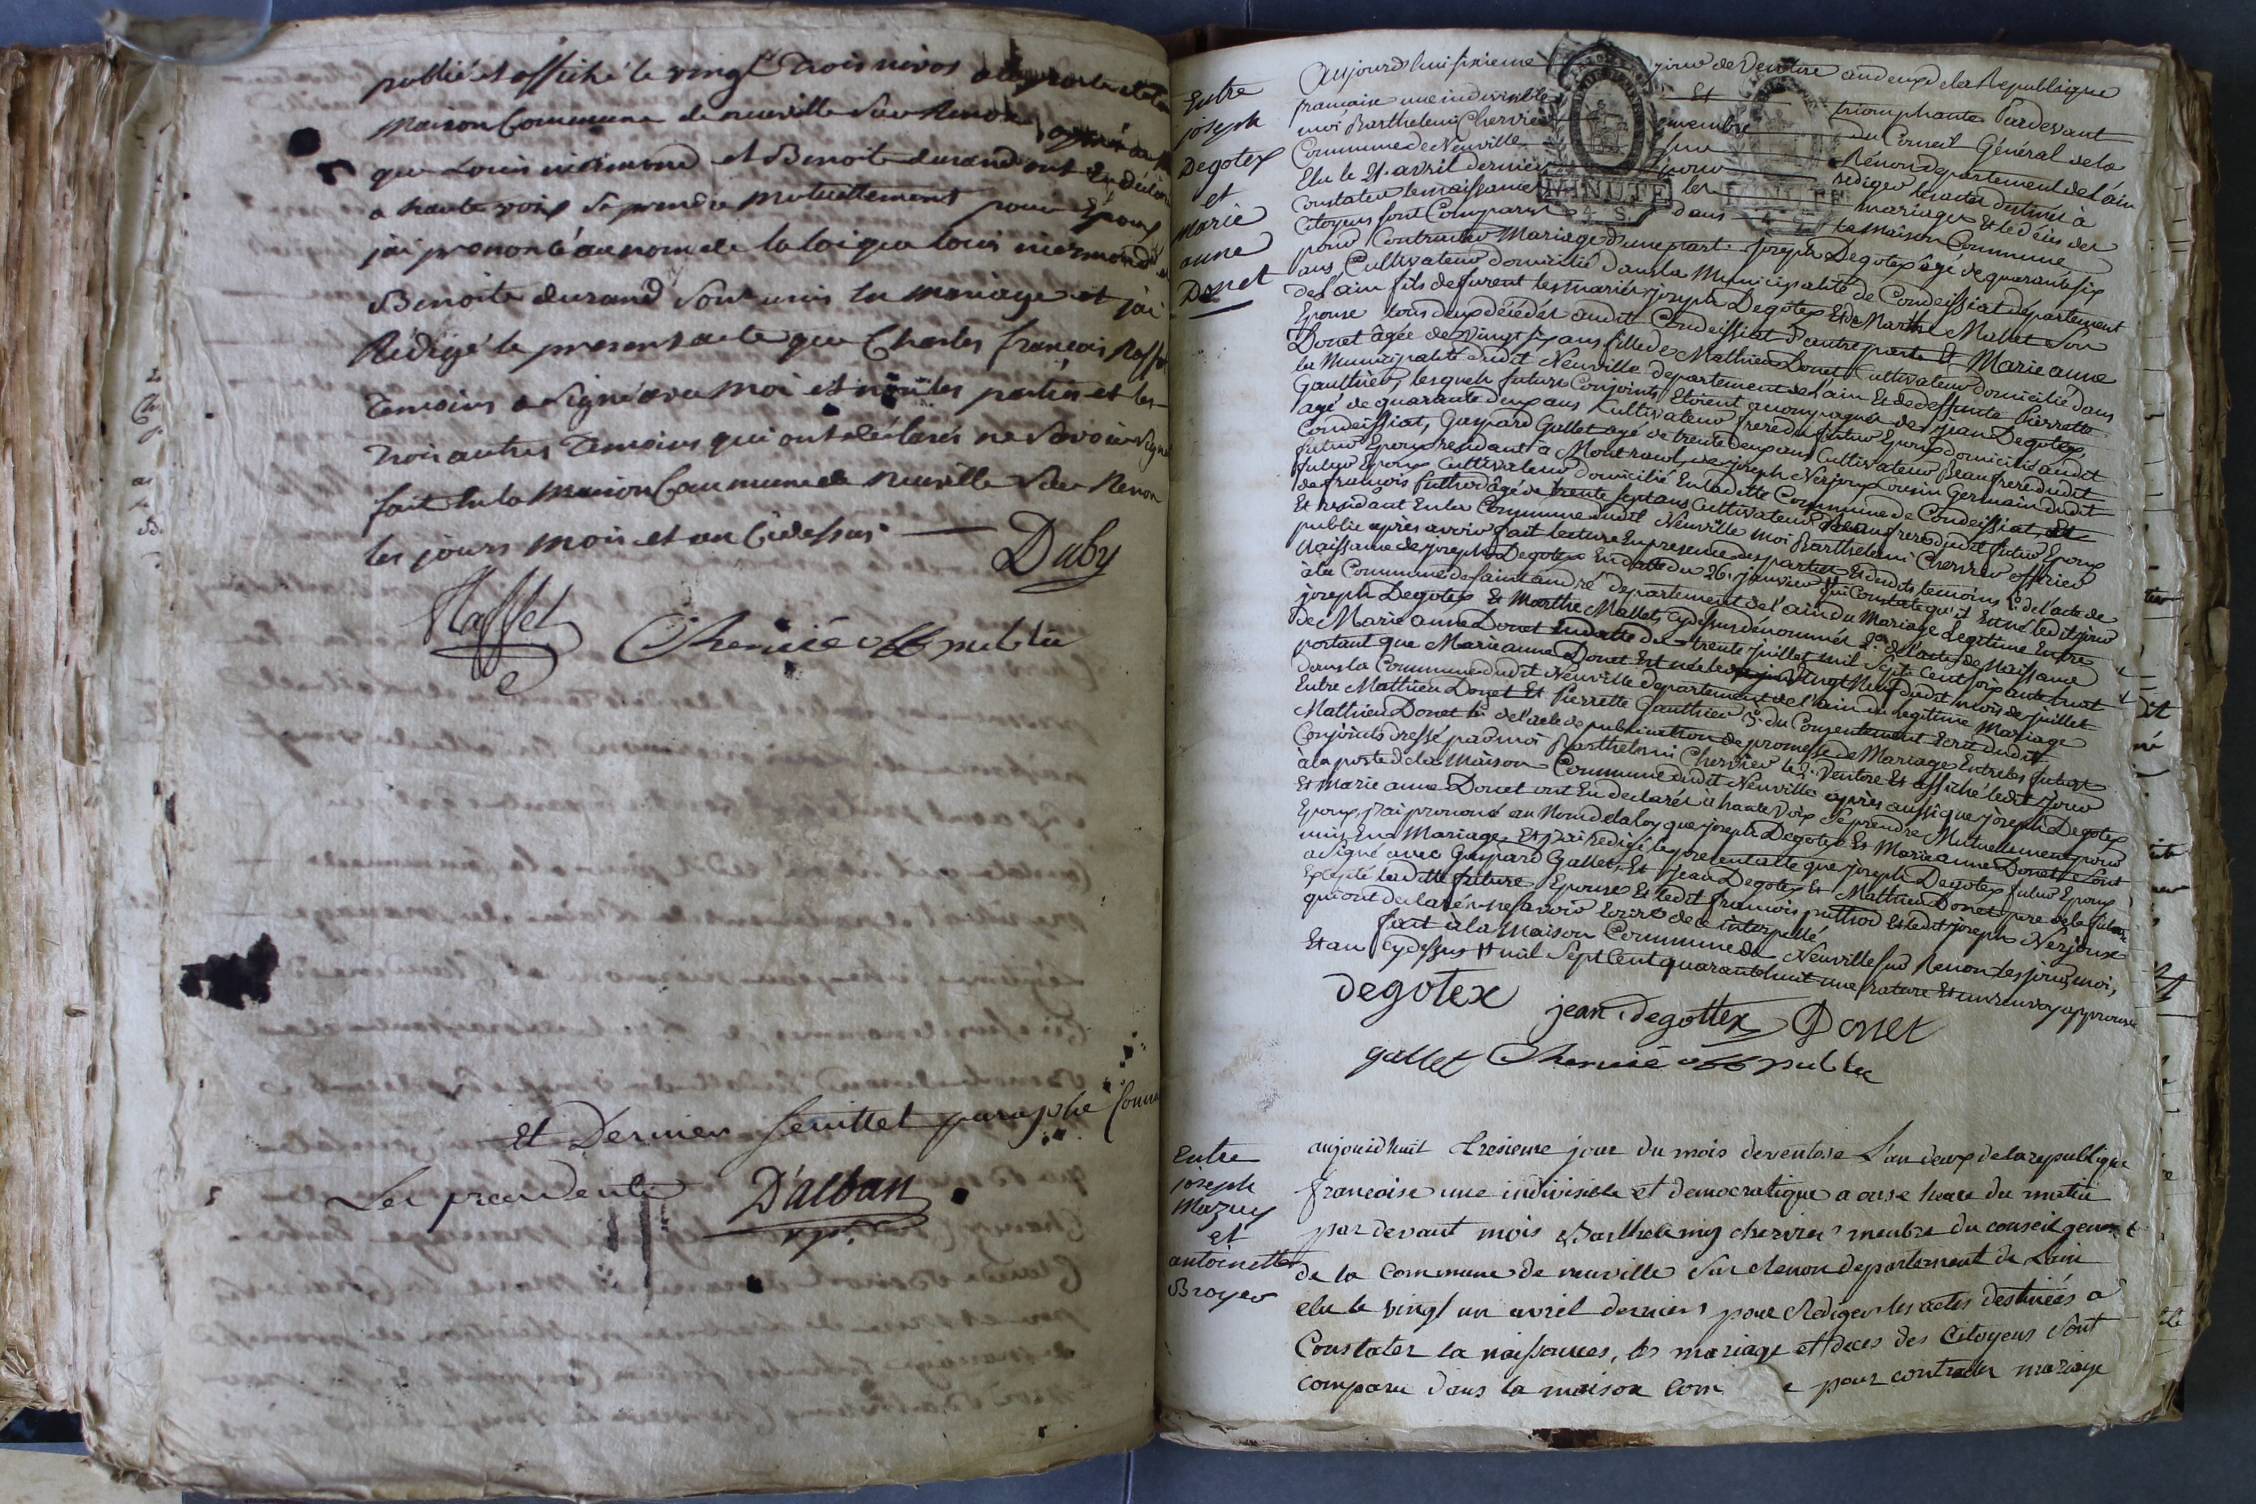 publié et affiché le vingt trois nivos a la porte de la
Maison Commune de neuville sur Renon, apres
que Louis niermond et Benoite durand ont Eu déclaré
a haute voix se prendre mutuellement pour Epoux
jai prononcé au nom de la loi que louis niermond et
Benoite durand sont unis En mariage et j'ai
Rédigé le present acte que Charles françois Raffet
Temoins a signé avec moi et non les parties et les
trois autres Temoins qui ont déclarés ne savoir signe
fait En la Maison Commune de neuville sur Renon
les jours mois et an Cidessus
Duby
Raffet
Chervié off public
Et Dernier feuillet paraphé
Le president D'alban
vp.
Entre
joseph
Degotex
et
Marie
anne
Donet
Aujourd'hui sixieme jour de Ventôse an deux de la Republique
française une indivisible Et triomphante Pardevant
moi Barthelemi Chervier membre du Conseil Général de la
Commune de Neuville sur Renon departement de l'ain
Elu le 21. avril dernier pour rédiger les actes destinés à
Constater les naissances les mariages et le décès des
Citoyens sont Comparus dans la maison Commune
pour Contracter Mariage d'une part. joseph Degotex âgé de quarante six
ans Cultivateur domicilié dans la Municipalité de Condeissiat département
de l'ain fils de furent les mariés joseph Degotex Et de Marthe Mallet son
Epouse tous deux décédés audit Condeissiat D'autre part Et Marie anne
Donet âgée de vingt six ans fille de Mathieu Donet Cultivateur domicilié dans
la Municipalité dudit Neuville departement de l'ain Et de deffunte Pierrette
Gauthier, lesquels futurs Conjoints Etoient accompagnés de jean Degotex,
agé de quarante deux ans Cultivateur frere du futur Epoux domicilié audit
Condeissiat, Gaspard Gallet agé de trente deux ans Cultivateur Beaufrere dudit
futur Epoux residant à Montracol, de joseph Nerjoux Cousin Germain dudit
futur Epoux Cultivateur domicilié En ladite Commune de Condeissiat, Et
de françois futhod âgé de trente sept ans Cultivateur Beaufrere dudit futur Epoux
Et residant En la Commune dudit Neuville moi Barthelemi Chervier officier
public après avoir fait lecture En presence des parties Et dudits temoins 1° de l'acte de
Naissance de joseph Degotex En datte du 26. janvier qui Constate qu'il Est né ledit jour
à la Commune de saint andré departement de l'ain du Mariage Legitime Entre
joseph Degotex Et Marthe Mallet, Cydessus dénommés 2° de l'acte de Naissance
De Marie anne Donet En datte du trente juillet mil sept cent soixante huit
portant que Marie anne Donet Est née le vingt Neuf dudit mois de juillet
dans la Commune dudit Neuville departement de l'ain du legitime Mariage
Entre Mathieu Donet Et Pierrette Gauthier 3° du Consentement Ecrit dudit
Mathieu Donet de l'acte de publication de promesse de Mariage Entre les futurs
Conjoints dressé par moi Barthelemi Chervier le 2. Ventôse Et affiché ledit jour
à la porte de la Maison Commune dudit Neuville après aussi que joseph Degotex
Et Marie anne Donet ont Eu declarés à haute Voix se prendre Mutuellement pour
Epoux, j'ai prononcé au Nom de la loy que joseph Degotex Et Marie anne Donet sont
unis En Mariage Et j'ai rédigé le present acte que joseph Degotex futur Epoux
a signé avec Gaspard Gallet, Et jean Degotex Et Mathieu Donet pere de la future
Excepté laditte future Epouse Et ledit françois futhod Et ledit joseph Nerjoux
qui ont declaré ne savoir Ecrire de ce interpellé
fait à la Maison Commune de Neuville sur Renon les jour, moi,
Et an Cydessus mil sept Cent quarante huit une rature Et un renvoy approuvé
degotex jean degottex Donet
gallet Chervié off public
Entre
joseph
Mazuy
et
antoinette
Broyer
aujourdhuit tresieme jour du mois deventose L'an deux de la republique
francoise une indivisible et democratique a onse heure du matin
par devant mois Barthelemy chervier menbre du conseil general
de la commune de neuville sur Renon departement de Lain
elu le vingt un avril derniers pour Rediger les actes destinées a
Constater la naissances, les mariage et deces des Citoyens sont
comparu dans la maison com e pour contracter mariage